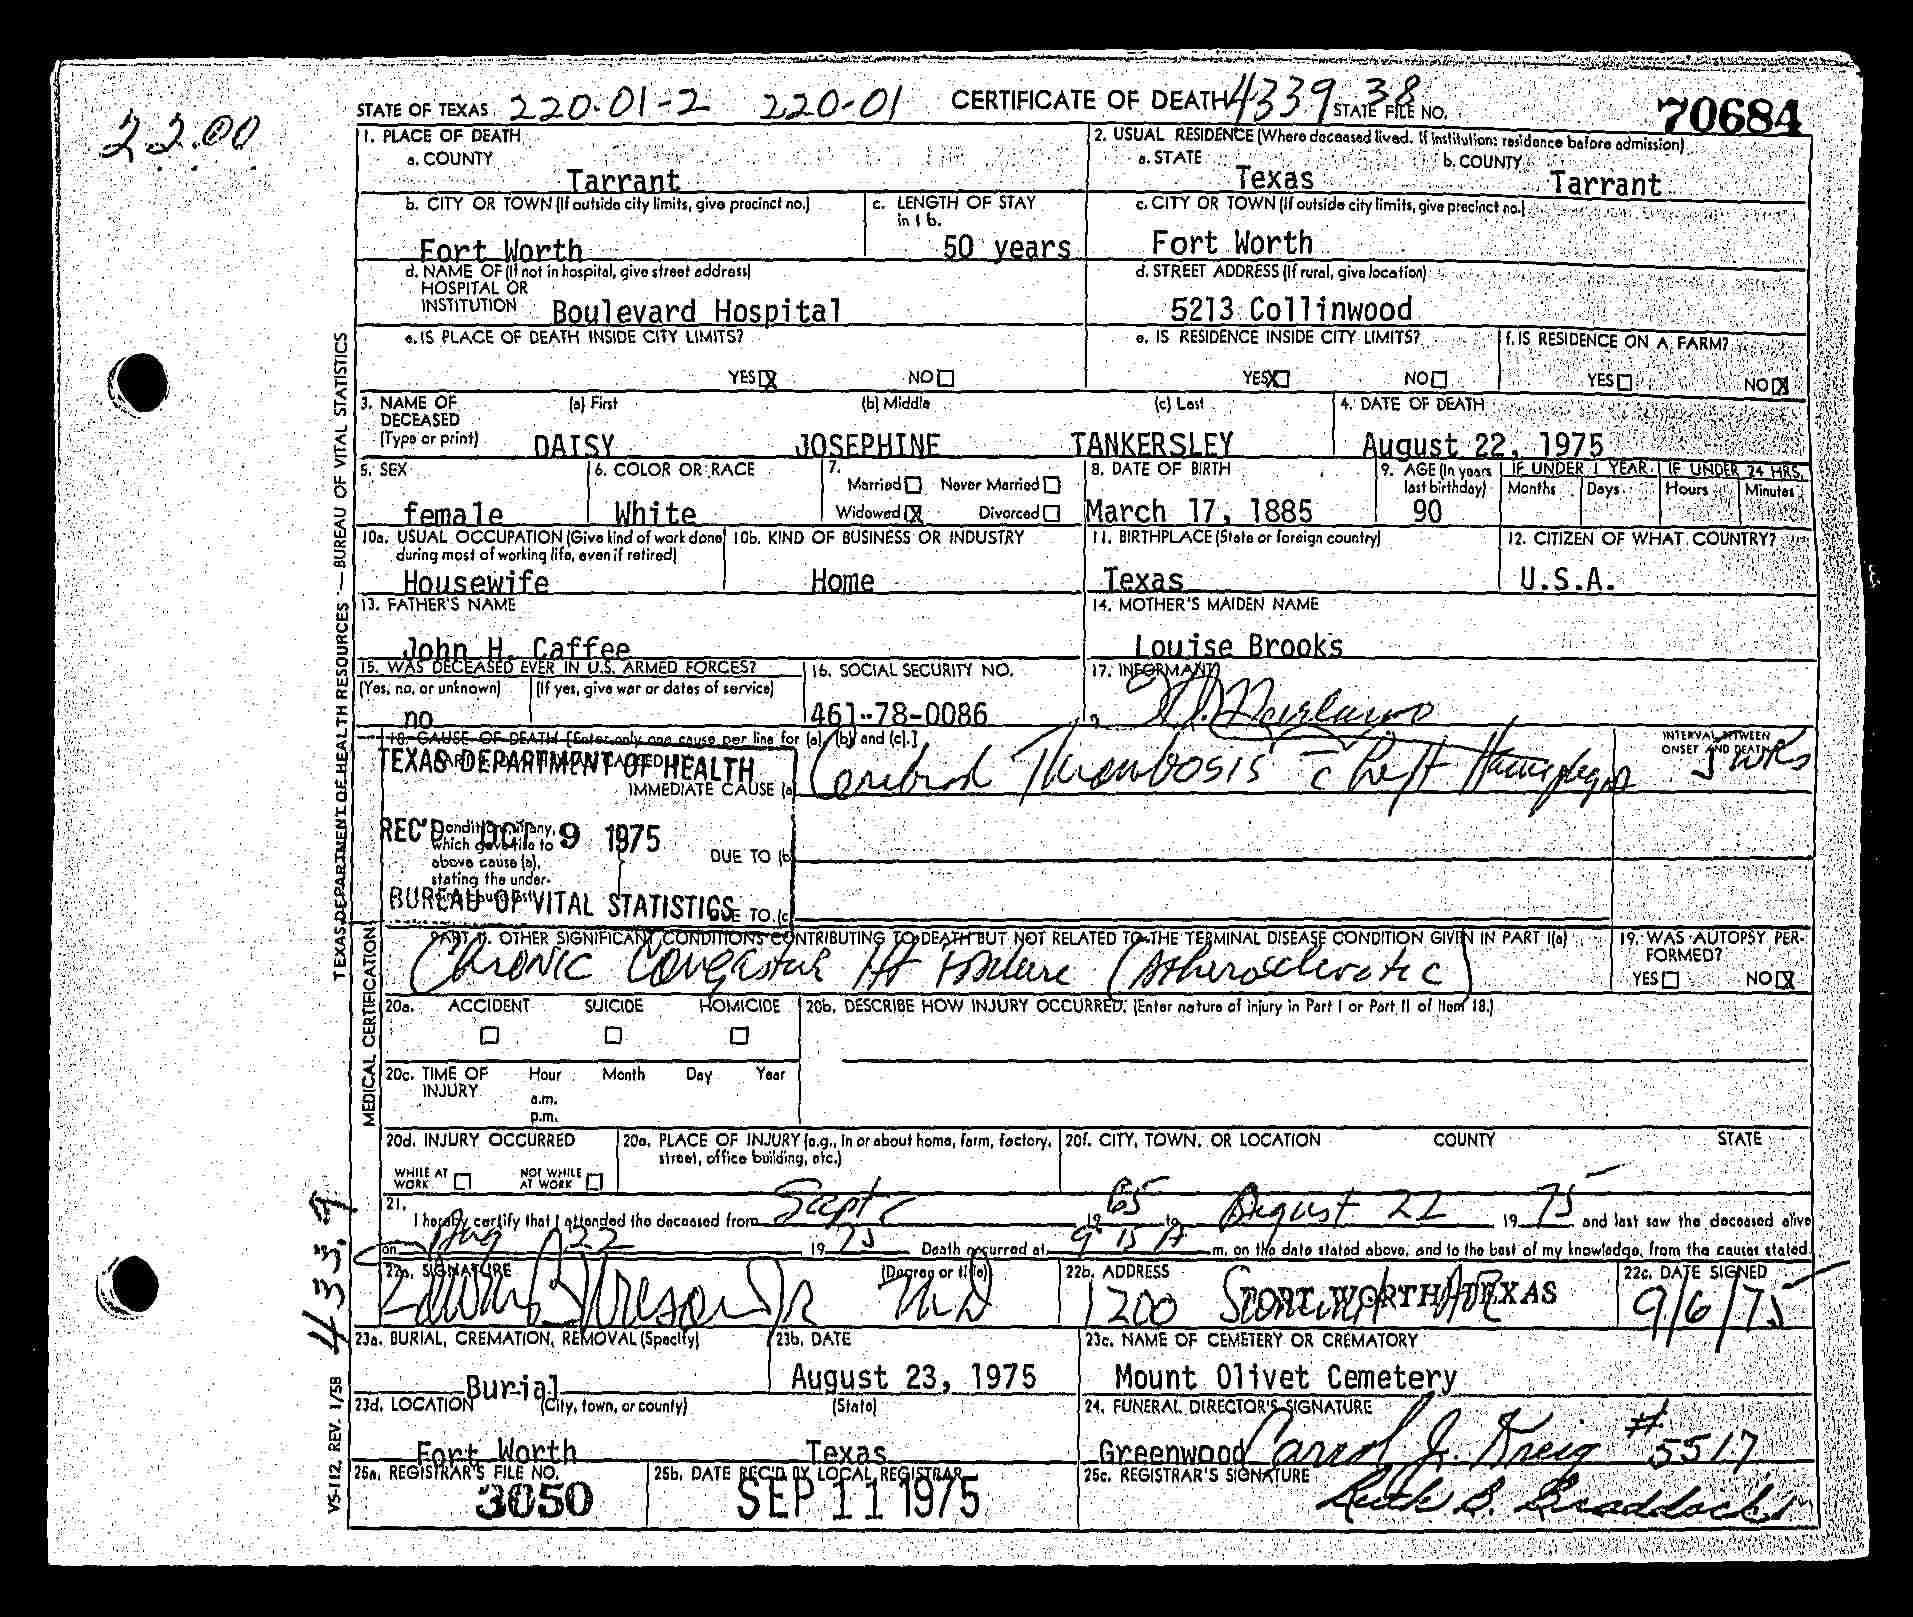 22.00
STATE OF TEXAS 220-01-2 220-01 CERTIFICATE OF DEATH 4339 38 STATE FILE NO. 70684
1. PLACE OF DEATH
a. COUNTY
Tarrant
2. USUAL RESIDENCE (Where deceased lived. If institution: residence before admission)
a. STATE b. COUNTY
Texas Tarrant
b. CITY OR TOWN (If outside city limits, give precinct no.)
Fort Worth
c. LENGTH OF STAY
in 1 b.
50 years
c. CITY OR TOWN (If outside city limits, give precinct no.)
Fort Worth
d. NAME OF (If not in hospital, give street address)
HOSPITAL OR
INSTITUTION Boulevard Hospital
d. STREET ADDRESS (If rural, give location)
5213 Collinwood
e. IS PLACE OF DEATH INSIDE CITY LIMITS?
YES X NO
e. IS RESIDENCE INSIDE CITY LIMITS?
YES X NO
f. IS RESIDENCE ON A FARM?
YES NO X
3. NAME OF DECEASED (Type or print)
(a) First (b) Middle (c) Last
DAISY JOSEPHINE TANKERSLEY
4. DATE OF DEATH
August 22, 1975
5. SEX
female
6. COLOR OR RACE
White
7.
Married Never Married
Widowed X Divorced
8. DATE OF BIRTH
March 17, 1885
9. AGE (In years last birthday)
90
IF UNDER 1 YEAR IF UNDER 24 HRS.
Months Days Hours Minutes
10a. USUAL OCCUPATION (Give kind of work done
during most of working life, even if retired)
Housewife
10b. KIND OF BUSINESS OR INDUSTRY
Home
11. BIRTHPLACE (State or foreign country)
Texas
12. CITIZEN OF WHAT COUNTRY?
U.S.A.
13. FATHER'S NAME
John H. Caffee
14. MOTHER'S MAIDEN NAME
Louise Brooks
15. WAS DECEASED EVER IN U.S. ARMED FORCES?
(Yes, no, or unknown) (If yes, give war or dates of service)
no
16. SOCIAL SECURITY NO.
461-78-0086
17. INFORMANT
18. CAUSE OF DEATH [Enter only one cause per line for (a), (b) and (c).]
TEXAS DEPARTMENT OF HEALTH
REC'D OCT 9 1975
BUREAU OF VITAL STATISTICS
IMMEDIATE CAUSE (a)
Cerebral Thrombosis c Left Hemiplegia
INTERVAL BETWEEN
ONSET AND DEATH
wks
Conditions, if any,
which gave rise to
above cause (a),
stating the under-
DUE TO (b)
DUE TO (c)
PART II. OTHER SIGNIFICANT CONDITIONS CONTRIBUTING TO DEATH BUT NOT RELATED TO THE TERMINAL DISEASE CONDITION GIVEN IN PART I(a)
Chronic Congestive Ht Failure (Atherosclerotic)
19. WAS AUTOPSY PER-
FORMED?
YES NO X
20a. ACCIDENT SUICIDE HOMICIDE
20b. DESCRIBE HOW INJURY OCCURRED. (Enter nature of injury in Part I or Part II of Item 18.)
20c. TIME OF INJURY
Hour Month Day Year
a.m.
p.m.
20d. INJURY OCCURRED
WHILE AT WORK NOT WHILE AT WORK
20e. PLACE OF INJURY (e.g., in or about home, farm, factory,
street, office building, etc.)
20f. CITY, TOWN, OR LOCATION COUNTY STATE
21.
I hereby certify that I attended the deceased from Sept 1965 to August 22 1975 and last saw the deceased alive
on Aug 22 1975 Death occurred at 9 15 A m, on the date stated above, and to the best of my knowledge, from the causes stated.
22a. SIGNATURE (Degree or title)
MD
22b. ADDRESS
1200 FORT WORTH, TEXAS
22c. DATE SIGNED
9/6/75
23a. BURIAL, CREMATION, REMOVAL (Specify)
Burial
23b. DATE
August 23, 1975
23c. NAME OF CEMETERY OR CREMATORY
Mount Olivet Cemetery
23d. LOCATION (City, town, or county) (State)
Fort Worth Texas
24. FUNERAL DIRECTOR'S SIGNATURE
Greenwood Carrol J. Kreig #5517
25a. REGISTRAR'S FILE NO.
3050
25b. DATE REC'D BY LOCAL REGISTRAR
SEP 11 1975
25c. REGISTRAR'S SIGNATURE
Ruth B. Braddock
TEXAS DEPARTMENT OF HEALTH RESOURCES — BUREAU OF VITAL STATISTICS
MEDICAL CERTIFICATION
4339
VS-112, REV. 1/58